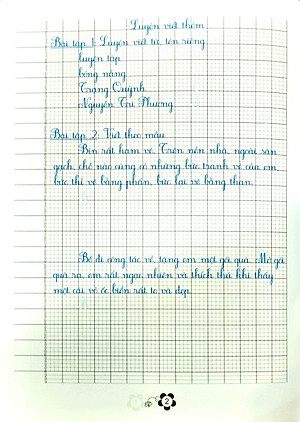 Luyện viết thêm
Bài tập 1: Luyện viết từ, tên riêng
luyện tập
bóng nắng
Trạng Quỳnh
Nguyễn Tri Phương
Bài tập 2: Viết theo mẫu
Bin rất ham vẽ. Trên nền nhà, ngoài sân
gạch, chỗ nào cũng có những bức tranh vẽ của em,
bức thì vẽ bằng phấn, bức lại vẽ bằng than.
Bố đi công tác về, tặng em một gói quà. Mở gói
quà ra, em rất ngạc nhiên và thích thú khi thấy
một cái vỏ ốc biển rất to và đẹp.
2